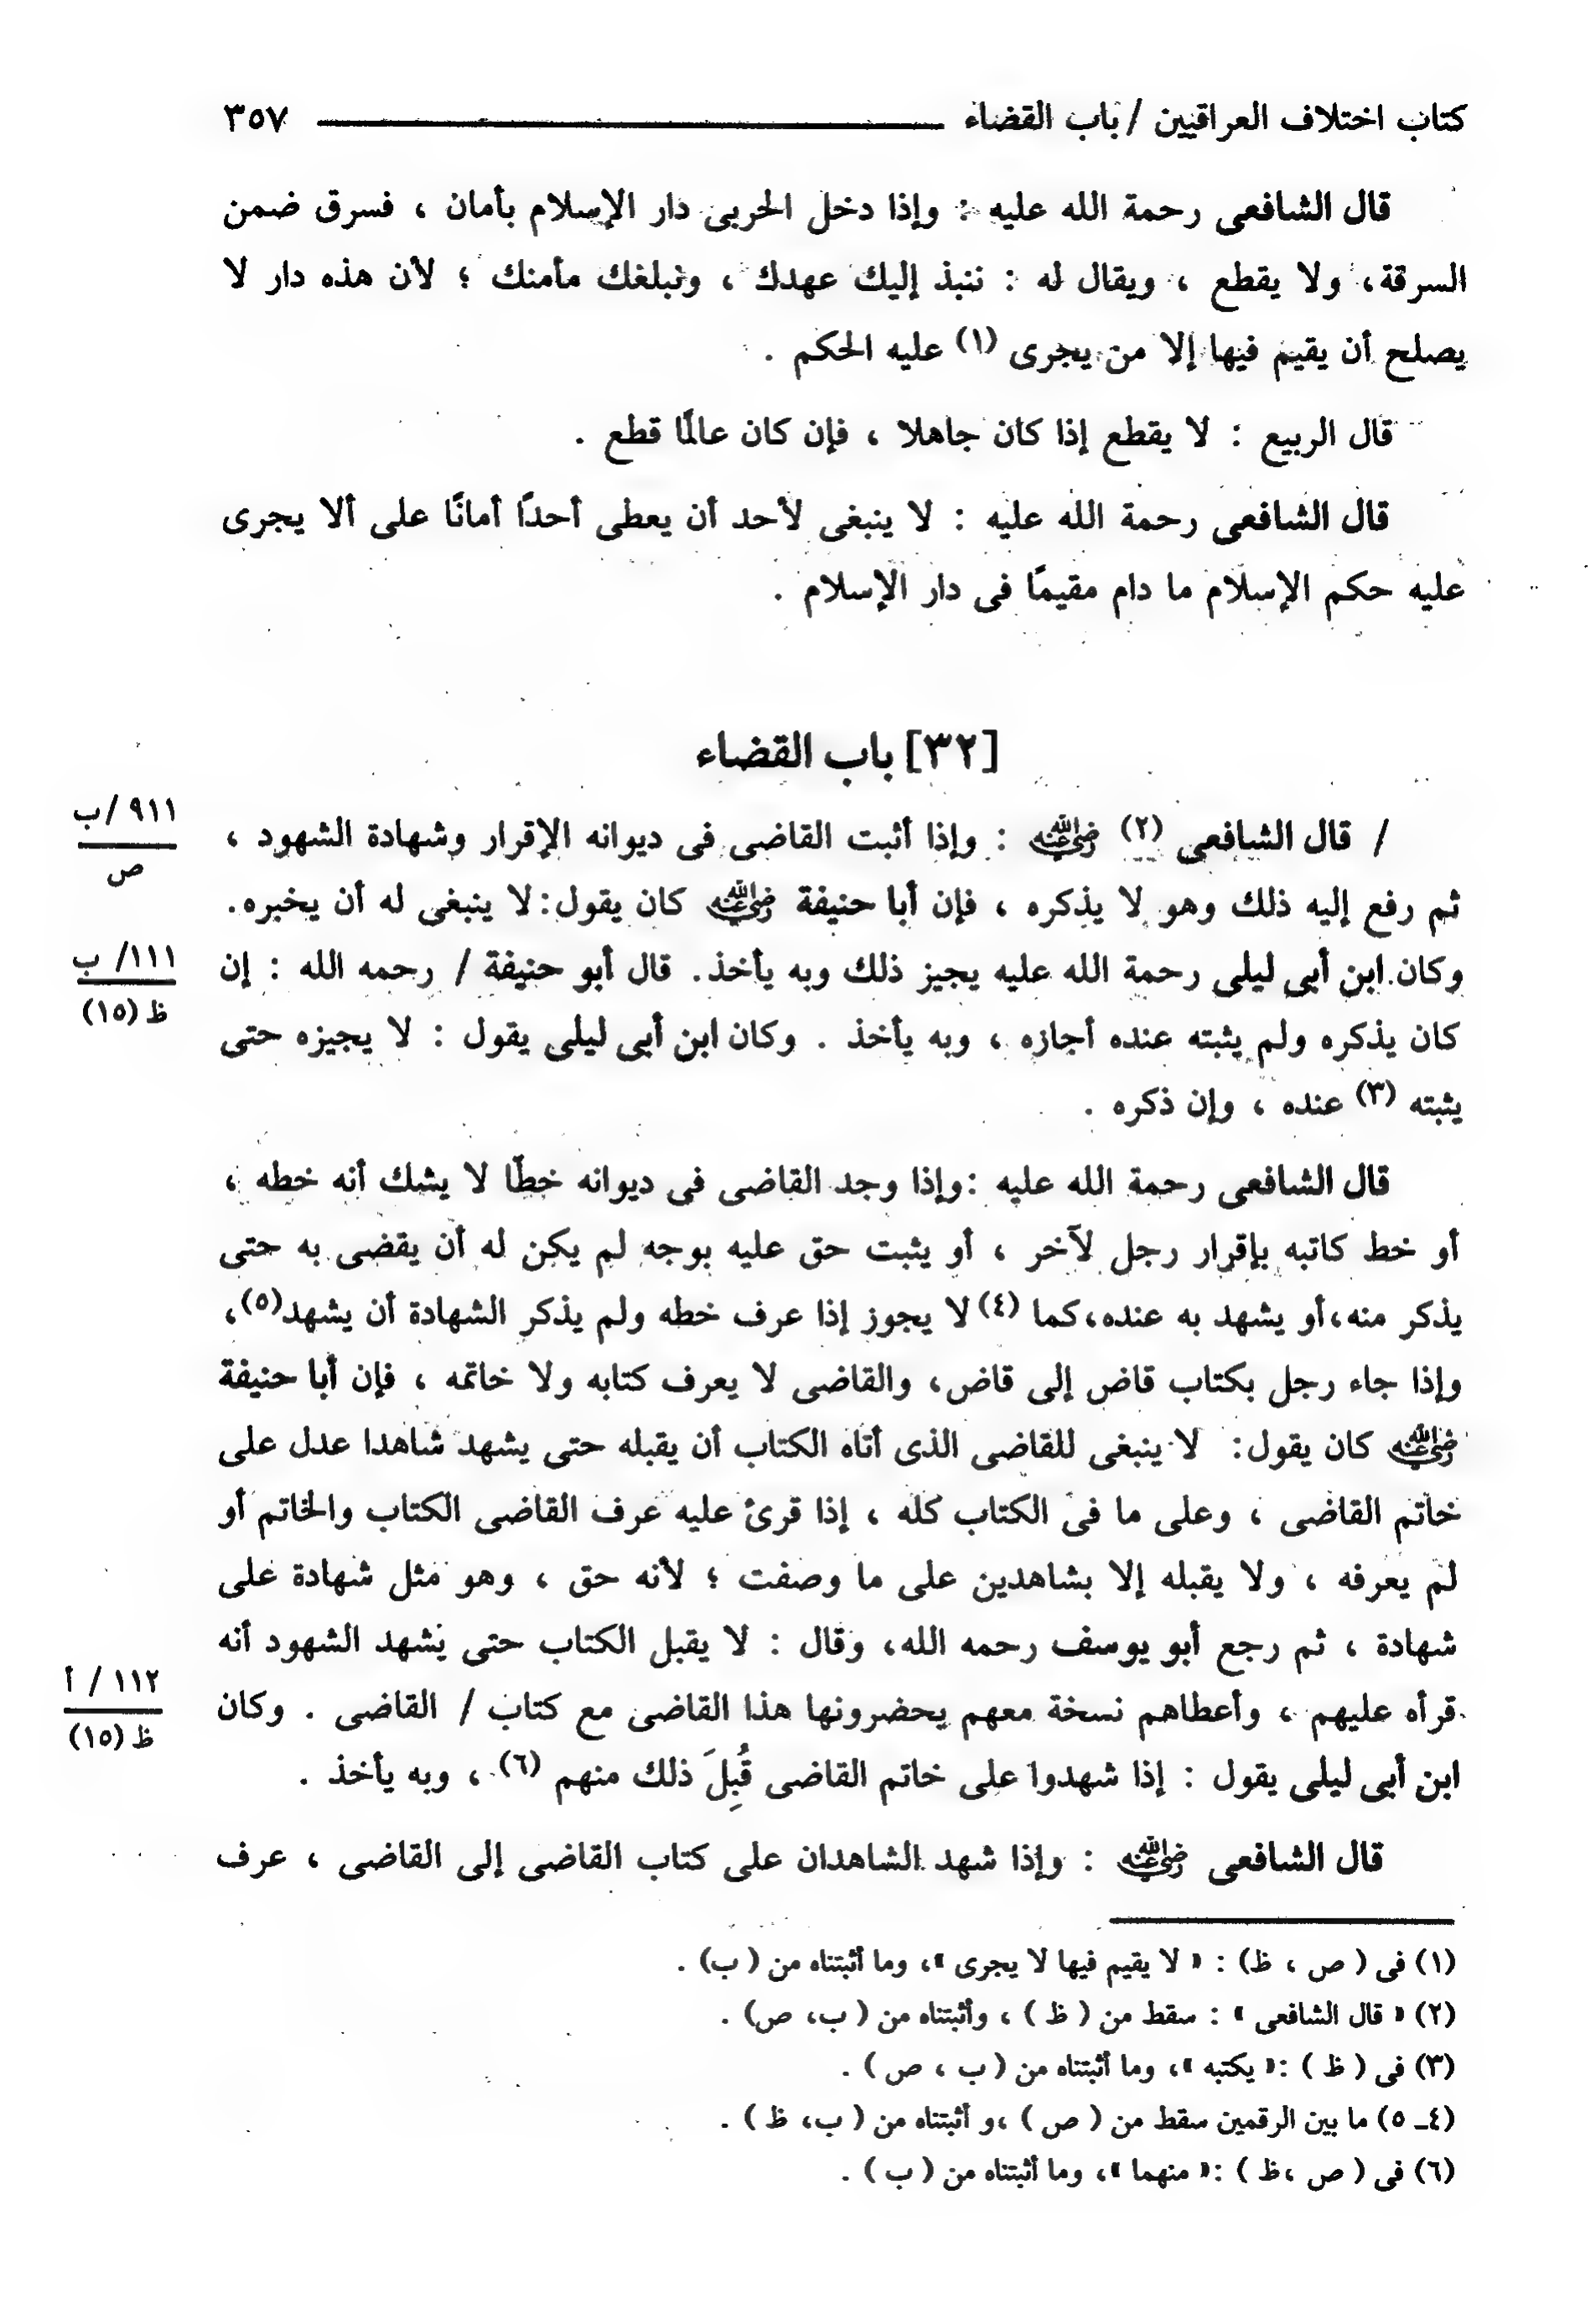 كتاب اختلاف العراقيين / باب القضاء ٣٥٧
قال الشافعى رحمة الله عليه : وإذا دخل الحربى دار الإسلام بأمان ، فسرق ضمن
السرقة، ولا يقطع ، ويقال له : ننبذ إليك عهدك ، ونبلغك مأمنك ؛ لأن هذه دار لا
يصلح أن يقيم فيها إلا من يجرى (١) عليه الحكم .
قال الربيع : لا يقطع إذا كان جاهلا ، فإن كان عالمًا قطع .
قال الشافعى رحمة الله عليه : لا ينبغى لأحد أن يعطى أحدًا أمانًا على ألا يجرى
عليه حكم الإسلام ما دام مقيمًا فى دار الإسلام .
[٣٢] باب القضاء
٩١١ /ب
ص
/ قال الشافعى (٢) رضي الله عنه : وإذا أثبت القاضى فى ديوانه الإقرار وشهادة الشهود ،
ثم رفع إليه ذلك وهو لا يذكره ، فإن أبا حنيفة رضي الله عنه كان يقول: لا ينبغى له أن يخبره.
١١١/ ب
ظ (١٥)
وكان ابن أبى ليلى رحمة الله عليه يجيز ذلك وبه يأخذ. قال أبو حنيفة / رحمه الله : إن
كان يذكره ولم يثبته عنده أجازه ، وبه يأخذ . وكان ابن أبى ليلى يقول : لا يجيزه حتى
يثبته (٣) عنده ، وإن ذكره .
قال الشافعى رحمة الله عليه :وإذا وجد القاضى فى ديوانه خطًا لا يشك أنه خطه ،
أو خط كاتبه بإقرار رجل لآخر ، أو يثبت حق عليه بوجه لم يكن له أن يقضى به حتى
يذكر منه،أو يشهد به عنده،كما (٤) لا يجوز إذا عرف خطه ولم يذكر الشهادة أن يشهد(٥)،
وإذا جاء رجل بكتاب قاض إلى قاض، والقاضى لا يعرف كتابه ولا خاتمه ، فإن أبا حنيفة
رضي الله عنه كان يقول: لا ينبغى للقاضى الذى أتاه الكتاب أن يقبله حتى يشهد شاهدا عدل على
خاتم القاضى ، وعلى ما فى الكتاب كله ، إذا قرئ عليه عرف القاضى الكتاب والخاتم أو
لم يعرفه ، ولا يقبله إلا بشاهدين على ما وصفت ؛ لأنه حق ، وهو مثل شهادة على
شهادة ، ثم رجع أبو يوسف رحمه الله، وقال : لا يقبل الكتاب حتى يشهد الشهود أنه
١١٢ / أ
ظ (١٥)
قرأه عليهم ، وأعطاهم نسخة معهم يحضرونها هذا القاضى مع كتاب / القاضى . وكان
ابن أبى ليلى يقول : إذا شهدوا على خاتم القاضى قُبِلَ ذلك منهم (٦) ، وبه يأخذ .
قال الشافعى رضي الله عنه : وإذا شهد الشاهدان على كتاب القاضى إلى القاضى ، عرف
(١) فى ( ص ، ظ) : « لا يقيم فيها لا يجرى »، وما أثبتناه من ( ب) .
(٢) « قال الشافعى » : سقط من ( ظ ) ، وأثبتناه من ( ب، ص) .
(٣) فى ( ظ ) :« يكتبه »، وما أثبتناه من ( ب ، ص ) .
(٤ـ ٥) ما بين الرقمين سقط من ( ص ) ،و أثبتناه من ( ب، ظ ) .
(٦) فى ( ص ،ظ ) :« منهما »، وما أثبتناه من ( ب ) .